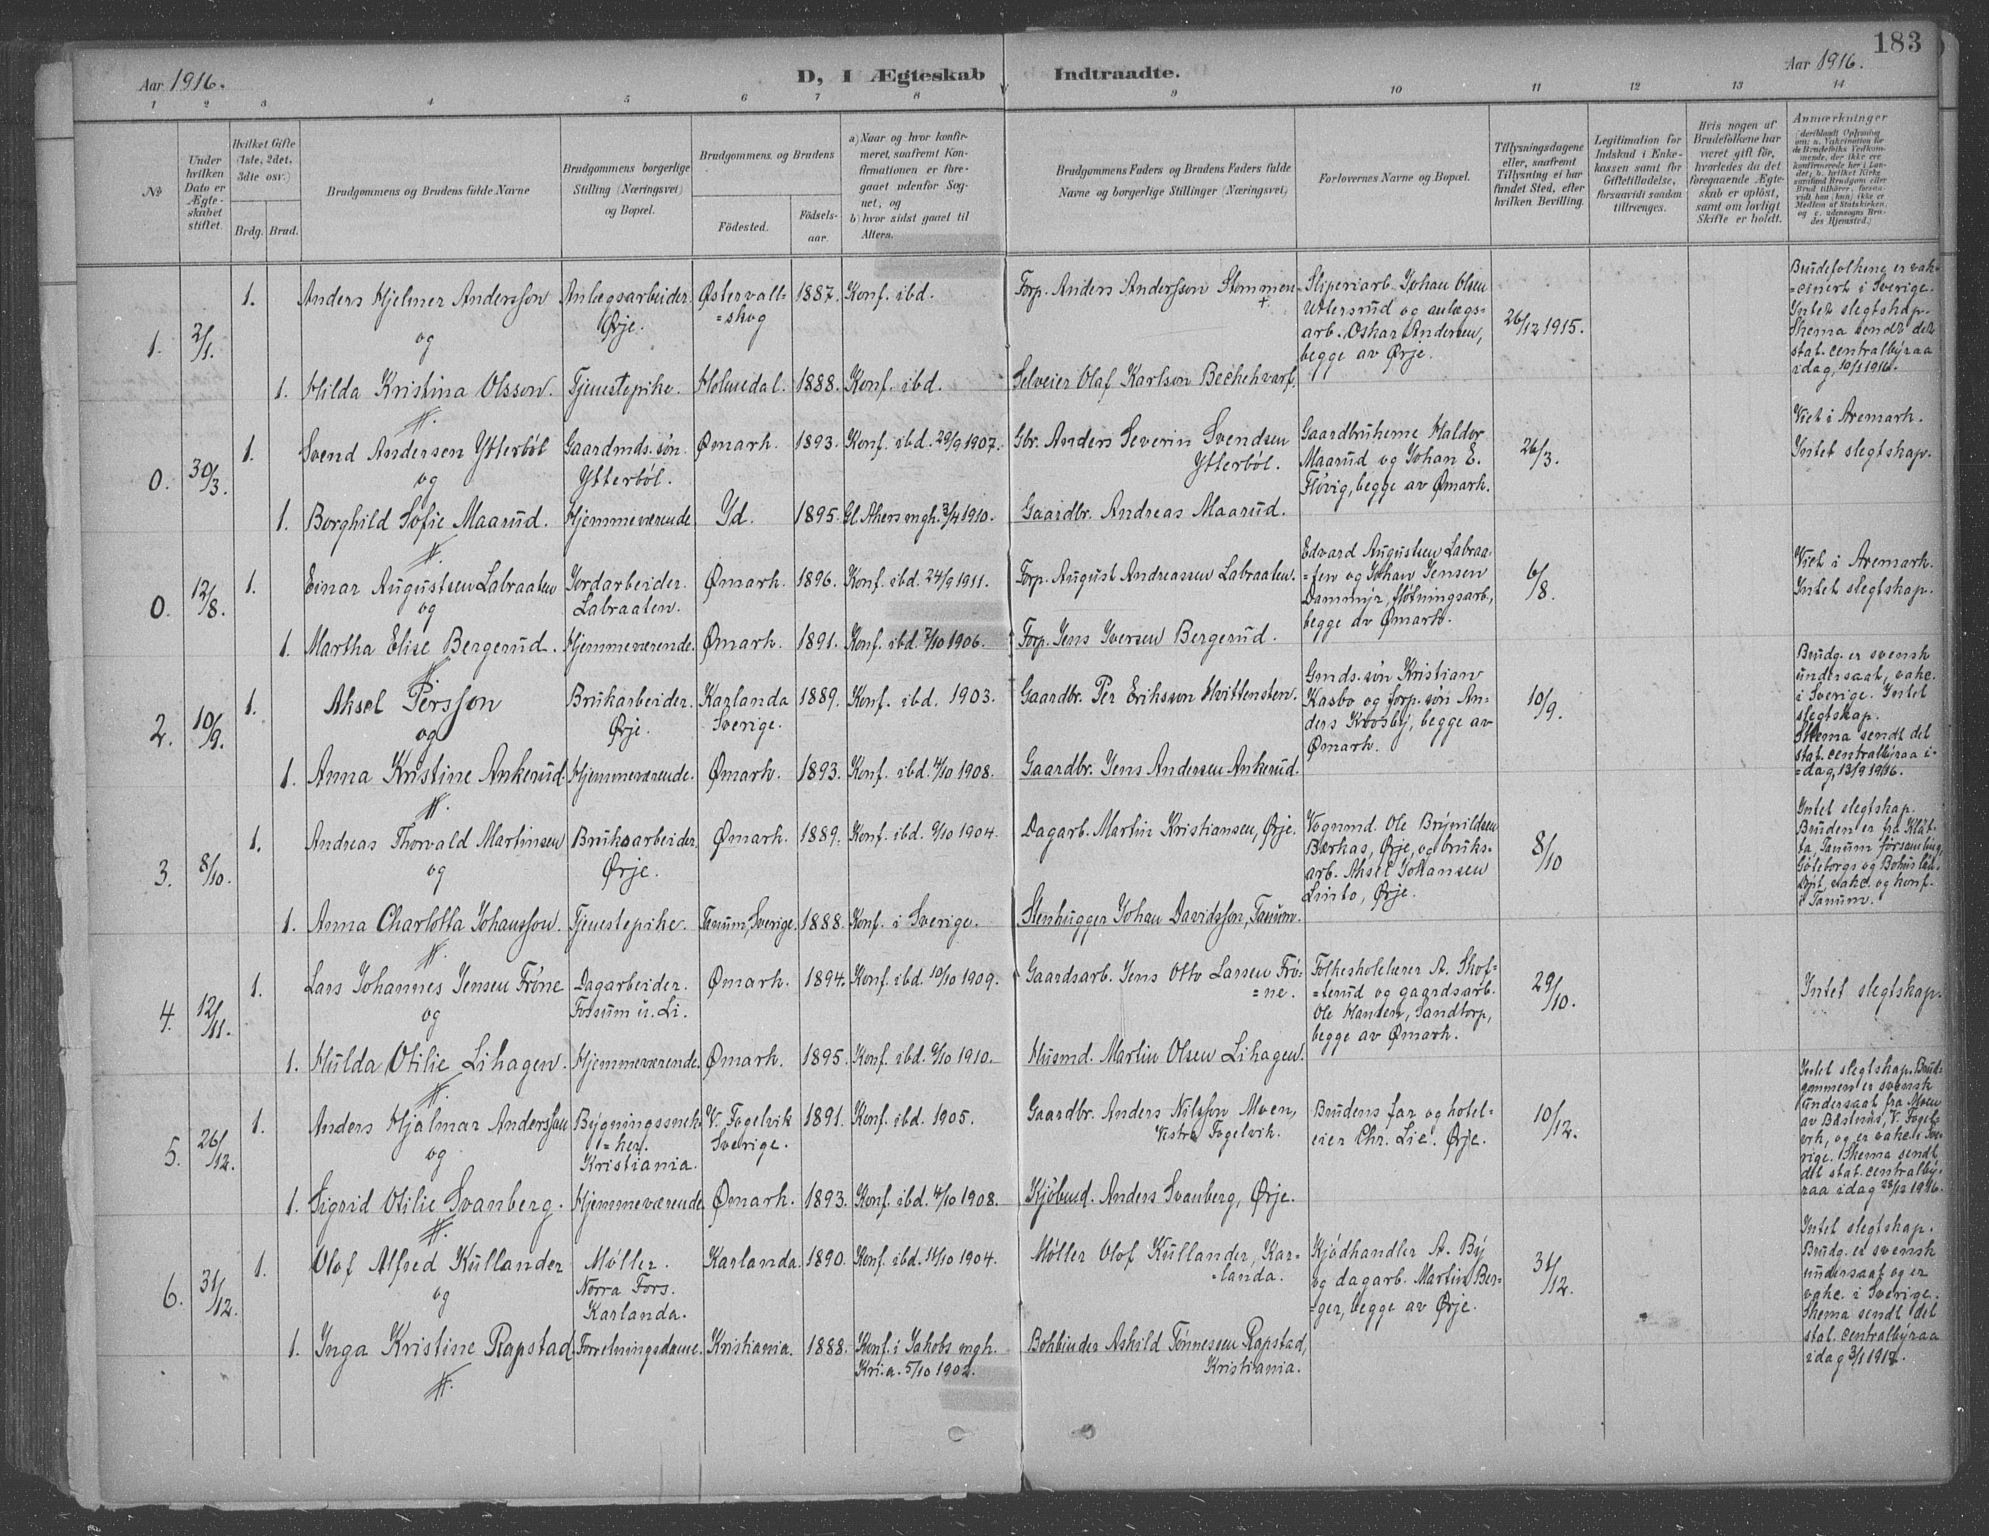 183
Aar 1916.
D, I Ægteskab Indtraadte.
Aar 1916.
1 2 3 4 5 6 7 8 9 10 11 12 13 14
№
Under hvilken Dato er Ægteskabet stiftet.
Hvilket Gifte (1ste, 2det, 3dte osv.)
Brdg. Brud.
Brudgommens og Brudens fulde Navne
Brudgommens borgerlige Stilling (Næringsvei) og Bopæl.
Brudgommens og Brudens
Fødested.
Fødselsaar.
a) Naar og hvor konfirmeret, saafremt Konfirmationen er foregaaet udenfor Sognet, og
b) hvor sidst gaaet til Alters.
Brudgommens Faders og Brudens Faders fulde Navne og borgerlige Stillinger (Næringsvei)
Forlovernes Navne og Bopæl.
Tillysningsdagene eller, saafremt Tillysning ei har fundet Sted, efter hvilken Bevilling.
Legitimation for Indskud i Enkekassen samt for Giftetilladelse, forsaavidt saadan tiltrænges.
Hvis nogen af Brudefolkene har været gift før, hvorledes da det foregaaende Ægteskab er opløst, samt om lovligt Skifte er holdt.
Anmærkninger
(deriblandt Oplysning om: a. Vakcination for de Brudefolks Vedkommende, der ikke ere konfirmerede her i Landet; b. hvilket Kirkesamfund Brudgom eller Brud tilhører, forsaavidt han (hun) ikke er Medlem af Statskirken, og c. udensogns Brudes Hjemsted.)
1. 2/1. 1. Anders Hjelmer Andersson Anlægsarbeider. Ørje. Østervall=skog 1887. Konf. ibd. Forp. Anders Andersson Stommen + Sliperiarb. Johan Olsen
Utlersrud og anlægs=
arb. Oskar Andersen,
begge av Ørje. 26/12 1915. Brudefolkene er vak=
=cinert i Sverige.
Intet slegtskap.
Skema sendt det
stat. centralbyraa
idag, 10/1 1916.
og
1. Hilda Kristina Olsson. Tjenestepike. Holmedal. 1888. Konf. ibd. Selveier Olaf Karlson Beckehvarf.
0. 30/3. 1. Svend Andersen Ytterböl Gaardmds. søn Ytterböl. Ømark. 1893. Konf. ibd. 29/9 1907. Gbr. Anders Severin Svendsen Ytterböl. Gaardbrukerne Haldor
Maarud og Johan E.
Flövig, begge av Ømark. 26/3. Viet i Aremark.
Intet slegtskap.
og
1. Borghild Sofie Maarud. Hjemmeværende Id. 1895. Gl. Akers mgh. 3/4 1910. Gaardbr. Andreas Maarud.
0. 12/8. 1. Einar Augustsen Labraaten Jordarbeider. Labraaten. Ømark. 1896. Konf. ibd. 24/9 1911. Forp. August Andreassen Labraaten. Edvard Augustsen Labraa=
=ten og Johan Jensen
Dammyr, fløtningsarb,
begge av Ømark. 6/8. Viet i Aremark.
Intet slegtskap.
og
1. Martha Elise Bergerud. Hjemmeværende. Ømark. 1891. Konf. ibd. 7/10 1906. Forp. Jens Iversen Bergerud.
2. 10/9. 1. Aksel Persson Brukarbeider. Ørje. Karlanda Sverige. 1889. Konf. ibd. 1903. Gaardbr. Per Eriksson Hvittensten. Gmds. søn Kristian
Kasbo og forp. søn An=
ders Krosby, begge av
Ømark. 10/9. Brudg. er svensk
undersaat, vakc.
i Sverige. Intet
slegtskap.
Skema sendt det
stat. centralbyraa i=
=dag, 13/9 1916.
og
1. Anna Kristine Ankerud. Hjemmeværende. Ømark. 1893. Konf. ibd. 4/10 1908. Gaardbr. Jens Andersen Ankerud.
3. 8/10. 1. Andreas Thorvald Martinsen Bruksarbeider. Ørje. Ømark. 1889. Konf. ibd. 9/10 1904. Dagarb. Martin Kristiansen, Ørje. Vognmd. Ole Brynildsen
Bærkas, Ørje, og bruks=
arb. Aksel Johansen
Linto, Ørje. 8/10 Intet slegtskap.
Bruden er fra
Tanum församling,
Göteborgs og Bohus län.
vakc. og konf.
i Tanum.
og
1. Anna Charlotta Johansson. Tjenestepike. Tanum, Sverige. 1888. Konf. i Sverige. Stenhugger Johan Davidsson, Tanum.
4. 12/11. 1. Lars Johannes Jensen Tröne Dagarbeider. Fossum u. Li. Ømark. 1894. Konf. ibd. 10/10 1909. Gaardsarb. Jens Otto Larsen Trö=
=ne. Folkeskolelærer A. Skof=
=terud og gaardsarb.
Ole Hansen, Sandtorp,
begge av Ømark. 29/10. Intet slegtskap.
og
1. Hulda Otilie Lihagen. Hjemmeværende. Ømark. 1895. Konf. ibd. 9/10 1910. Husmd. Martin Olsen Lihagen.
5. 26/12. 1. Anders Hjalmar Andersson Bygningssnek=
=ker. Kristiania. V. Fogelvik Sverige. 1891. Konf. ibd. 1905. Gaardbr. Anders Nilsson Moen,
Vestra Fogelvik. Brudens far og hotel=
eier Chr. Lie. Ørje. 10/12. Intet slegtskap. Brud=
gommen er svensk
undersaat fra Moen
av Båstnäs, V. Fogel=
vik, og er vakc. i Sve=
rige. Skema sendt
det stat. centralby=
raa idag 28/12 1916.
og
1. Sigrid Otilie Svanberg. Hjemmeværende Ømark. 1893. Konf. ibd. 4/10 1908. Kjöbmd. Anders Svanberg, Ørje.
6. 31/12. 1. Olof Alfred Kullander Møller. Norra Fors. Karlanda. Karlanda. 1890. Konf. ibd. 16/10 1904. Møller Olof Kullander, Kar=
=landa. Kjødhandler A. By
og dagarb. Martin Ber=
=ger, begge av Ørje. 31/12. Intet slegtskap.
Brudg. er svensk
undersaat og er
vakc. i Sverige.
Skema sendt det
stat. centralbyraa
idag 3/1 1917.
og
1. Inga Kristine Rapstad. Forretningsdame. Kristiania. 1888. Konf. i Jakobs mgh.
Kr.a. 5/10 1902. Bokbinder Askild Tönnesen Rapstad,
Kristiania.